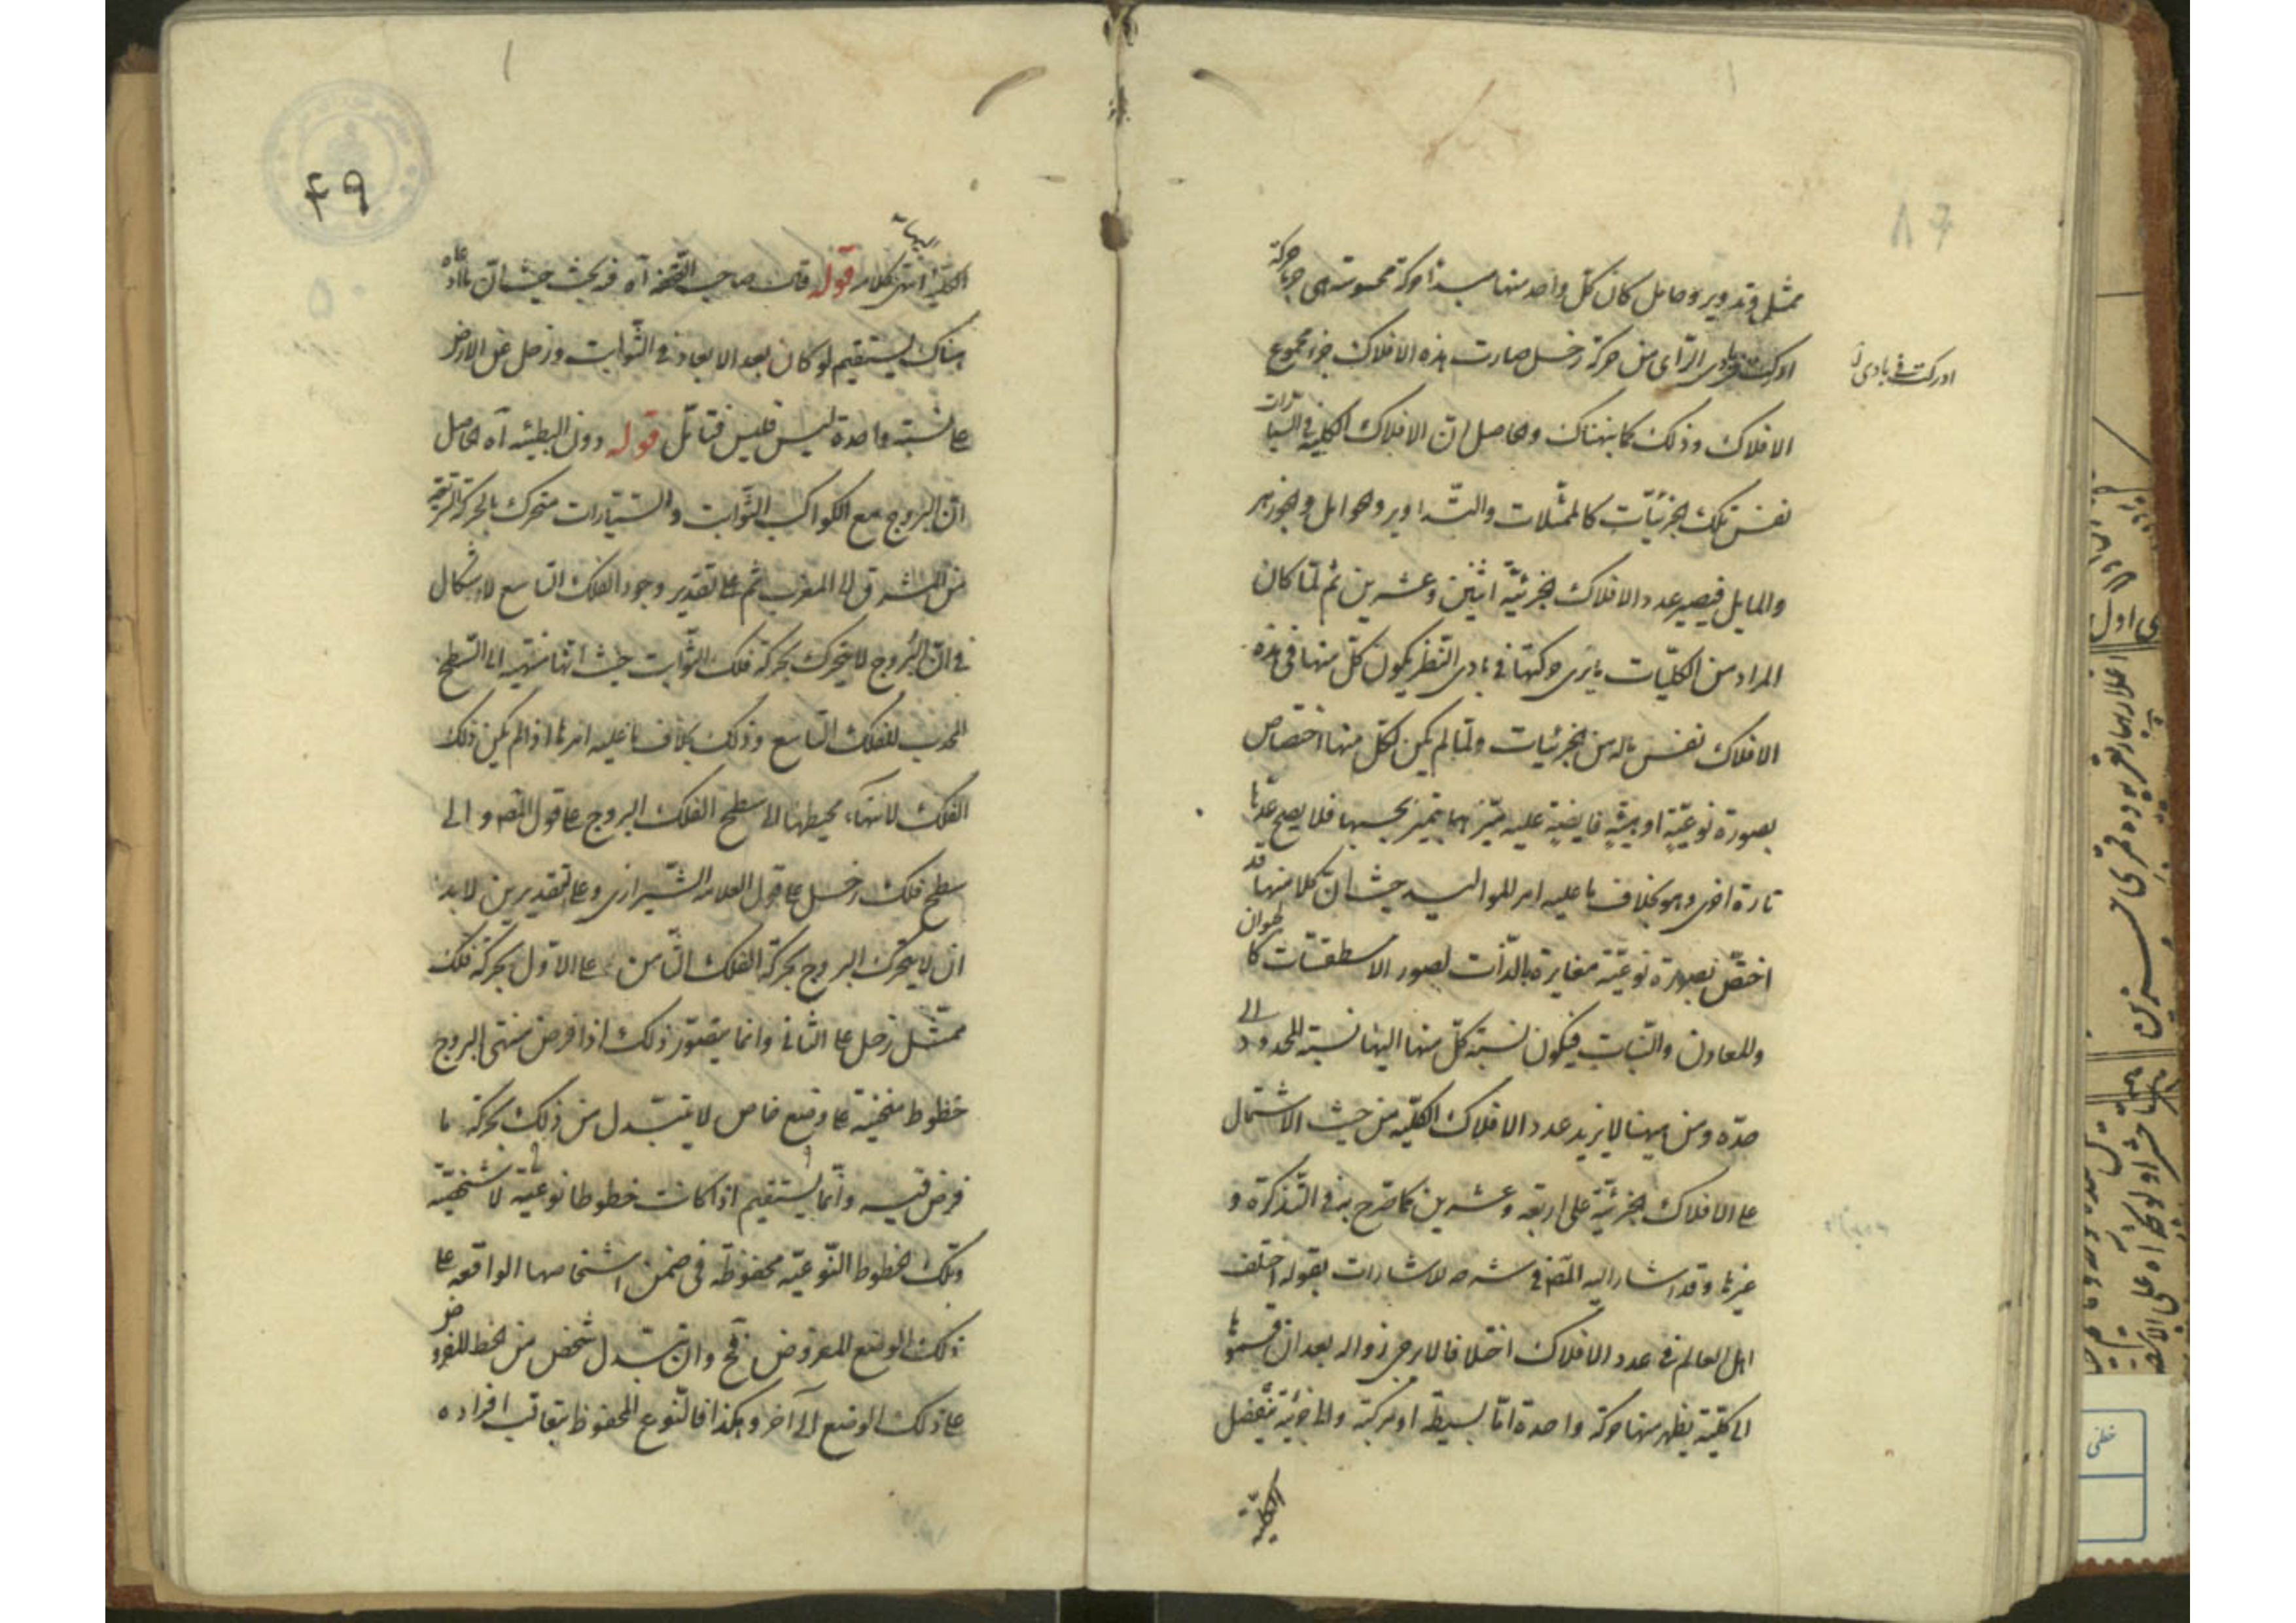 ممثل وتدوير وحامل كان كل واحد منها مبدا حركة محسوسة هي جزء حركة
ادركت في بادي الراى من حركة زحل صارت هذه الافلاك جزء مجموع
ادركت في بادى
الافلاك وذلك كما بيناك والحاصل ان الافلاك الكلية في السيارات
نفس تلك الجزئيات كالممثلات والتداوير والحوامل والجوزهر
والمايل فيصير عدد الافلاك الجزئية اثنين وعشرين ثم لما كان
المراد من الكليات ما يرى حركتها في بادى النظر يكون كل منها في هذه
الافلاك نفس ماله من الجزئيات ولما لم يكن لكل منها اختصاص
بصورة نوعية او هيئة فايضة عليه متميز بها يتميز بحسبها فلا يصح عدها
تارة اخرى وهو بخلاف ما عليه امر المواليد حيث ان كلا منها قد
اختص بصورة نوعية مغايرة بالذات لصور الاسطقسات كالحيوان
والمعادن والنبات فيكون نسبة كل منها اليها نسبة المحدود الى
حده ومن ههنا لا يزيد عدد الافلاك الكلية من حيث الاشتمال
على الافلاك الجزئية على اربعة وعشرين كما صرح به في التذكرة و
غيرها وقد اشار اليه المص في شرحه للاشارات بقوله اختلف
اهل العالم في عدد الافلاك اختلافا لا يرجى زواله بعد ان قسموها
الى كلية يظهر منها حركة واحدة اما بسيطة او مركبة والى جزئية ينفصل
الكلية
٤٩
الكلية اليها انتهى كلامه قوله قال صاحب التحفة آه فيه بحث حيث ان ما ادعاه
هناك يستقيم لو كان بعد الابعاد في الثوابت وزحل عن الارض
على نسبة واحدة ليس فليس فتأمل قوله دون البطيئة آه الحاصل
ان البروج مع الكواكب الثوابت والسيارات متحرك بالحركة السريعة
من المشرق الى المغرب ثم على تقدير وجود الفلك التاسع لا اشكال
في ان البروج لا يتحرك بحركة فلك الثوابت حيث انها منتهية الى السطح
المحدب للفلك التاسع وذلك بخلاف ما عليه امرها اذا لم يكن ذلك
الفلك لانتهاء محيطها الى سطح الفلك البروج على قول المص والى
سطح فلك زحل على قول العلامة الشيرازى وعلى التقديرين لا بد
ان لا يتحرك البروج بحركة الفلك الثامن على الاول بحركة فلك
ممثل زحل على الثانى وانما يتصور ذلك اذا فرض منتهى البروج
خطوط منحنية على وضع خاص لا يتبدل من ذلك بحركة ما
فرض فيه وانما يستقيم اذا كانت خطوطا نوعية لا شخصية
وتلك الخطوط النوعية محفوظة في ضمن اشخاصها الواقعة على
ذلك الوضع المفروض فح وان تبدل شخص من الخط المفروض
على ذلك الوضع الى آخر وهكذا فالنوع المحفوظ بتعاقب افراده